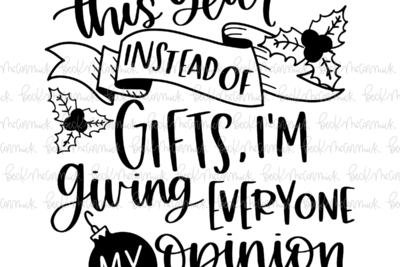 this year
INSTEAD OF
GIFTS, I'M
giving EVERYONE
MY opinion